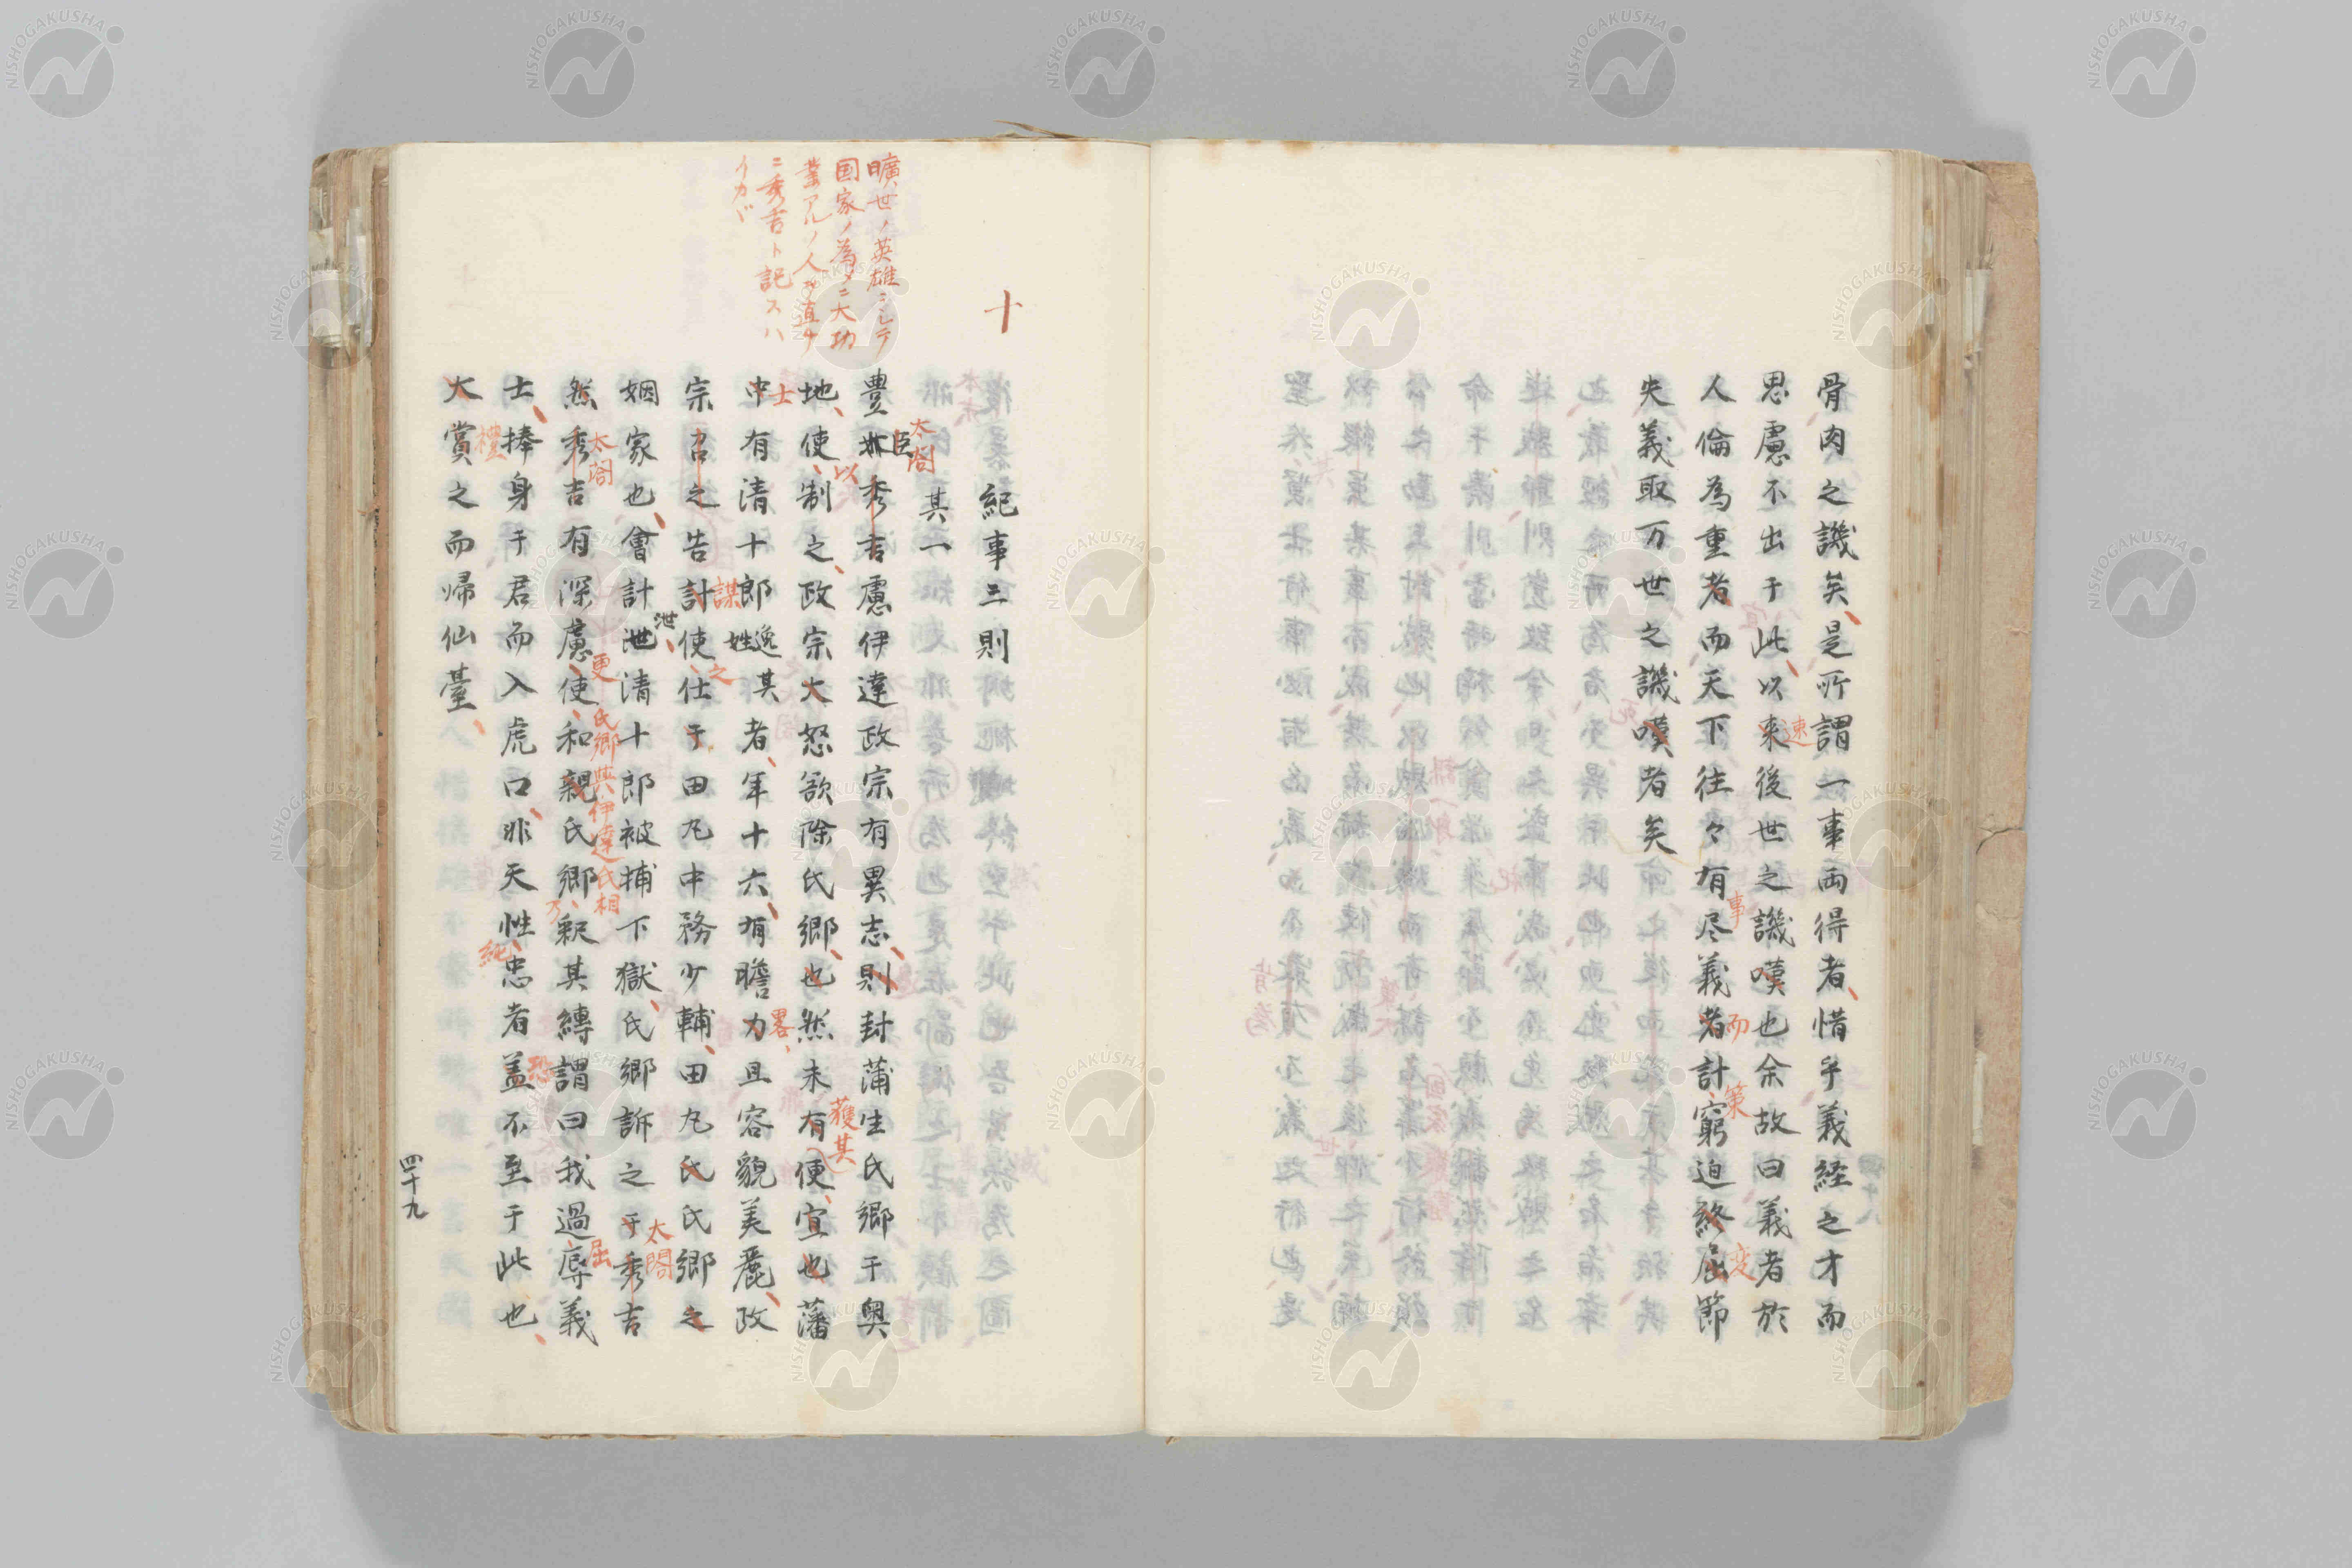 骨肉之譏矣是所謂一事両得者惜乎義経之才而
思慮不出于此以来後世之譏嘆也余故曰義者於
速
人倫為重者而天下往々有尽義者計窮迫終屈節
事
而
策
変
失義取万世之譏嘆者矣
十
紀事三則
其一
曠世ノ英雄ニシテ
国家ノ為メニ大功
業アルノ人ヲ直チ
ニ秀吉ト記スハ
イカヾ
豊臣秀吉慮伊達政宗有異志則封蒲生氏郷于奥
太閤
地使制之政宗大怒欲除氏郷也然未有便宜也藩
以
獲其
中有清十郎逸其姓者年十六有瞻力且容貌美麗政
士
畧
宗召之告計使仕于田丸中務少輔田丸氏氏郷之
謀
之
姻家也會計泄清十郎被捕下獄氏郷訴之于秀吉
泄
太閤
然秀吉有深慮使和親氏郷釈其縛謂曰我過辱義
太閤
更
氏郷與伊達氏相
乃
屈
士捧身于君而入虎口非天性忠者盖不至于此也
純
恐
大賞之而帰仙臺
禮
四十九